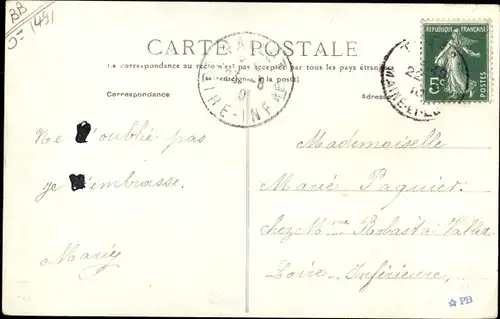 BB
1491
CARTE POSTALE
La correspondance au recto n'est pas acceptée par tous les pays étrangers
(se renseigner à la poste)
Correspondance
Adresse
REPUBLIQUE FRANÇAISE
5c
POSTES
INE-INF
Ne oublie pas
je embrasse.
Mademoiselle
Marie Paquier
chez Mme
Loire Inférieure
PB